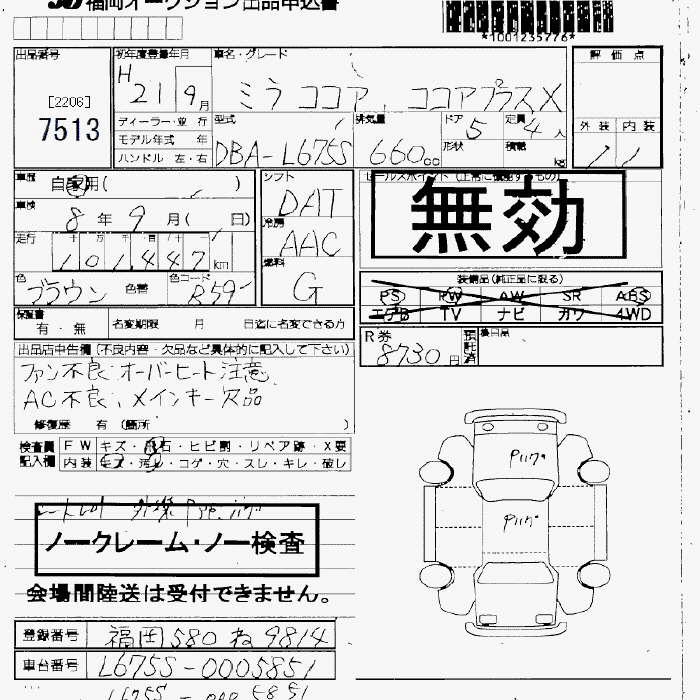 福岡オークション出品申込書
*1001235776*
出品番号
[2206]
7513
初年度登録年月
H 21 9月
ディーラー・並行
モデル年式 年
ハンドル 左・右
車名・グレード
ミラ ココア, ココアプラスX
型式
DBA-L675S
排気量
660cc
ドア 5
形状
定員 4人
積載 kg
評価点
外装 内装
車歴
自家用( )
車検
8年9月( 日)
走行
101,447km
色
ブラウン 色替
色コード
R59
シフト
DAT
冷房
AAC
燃料
G
セールスポイント(正常に機能するもの)
無効
装備品(純正品に限る)
PS PW AW SR ABS
エアB TV ナビ カワ 4WD
保証書
有・無
名変期限 月 日迄に名変できる方
R券
8730円
預託済
後日品
出品店申告欄(不良内容・欠品など具体的に記入して下さい)
ファン不良:オーバーヒート注意
AC不良、メインキー欠品
修復歴 有(箇所 )
検査員記入欄
FW キズ・飛石・ヒビ割・リペア跡・X要
内装 キズ・汚れ・コゲ・穴・スレ・キレ・破し
ノークレーム・ノー検査
会場間陸送は受付できません。
登録番号
福岡580ね9814
車台番号
L675S-0005851